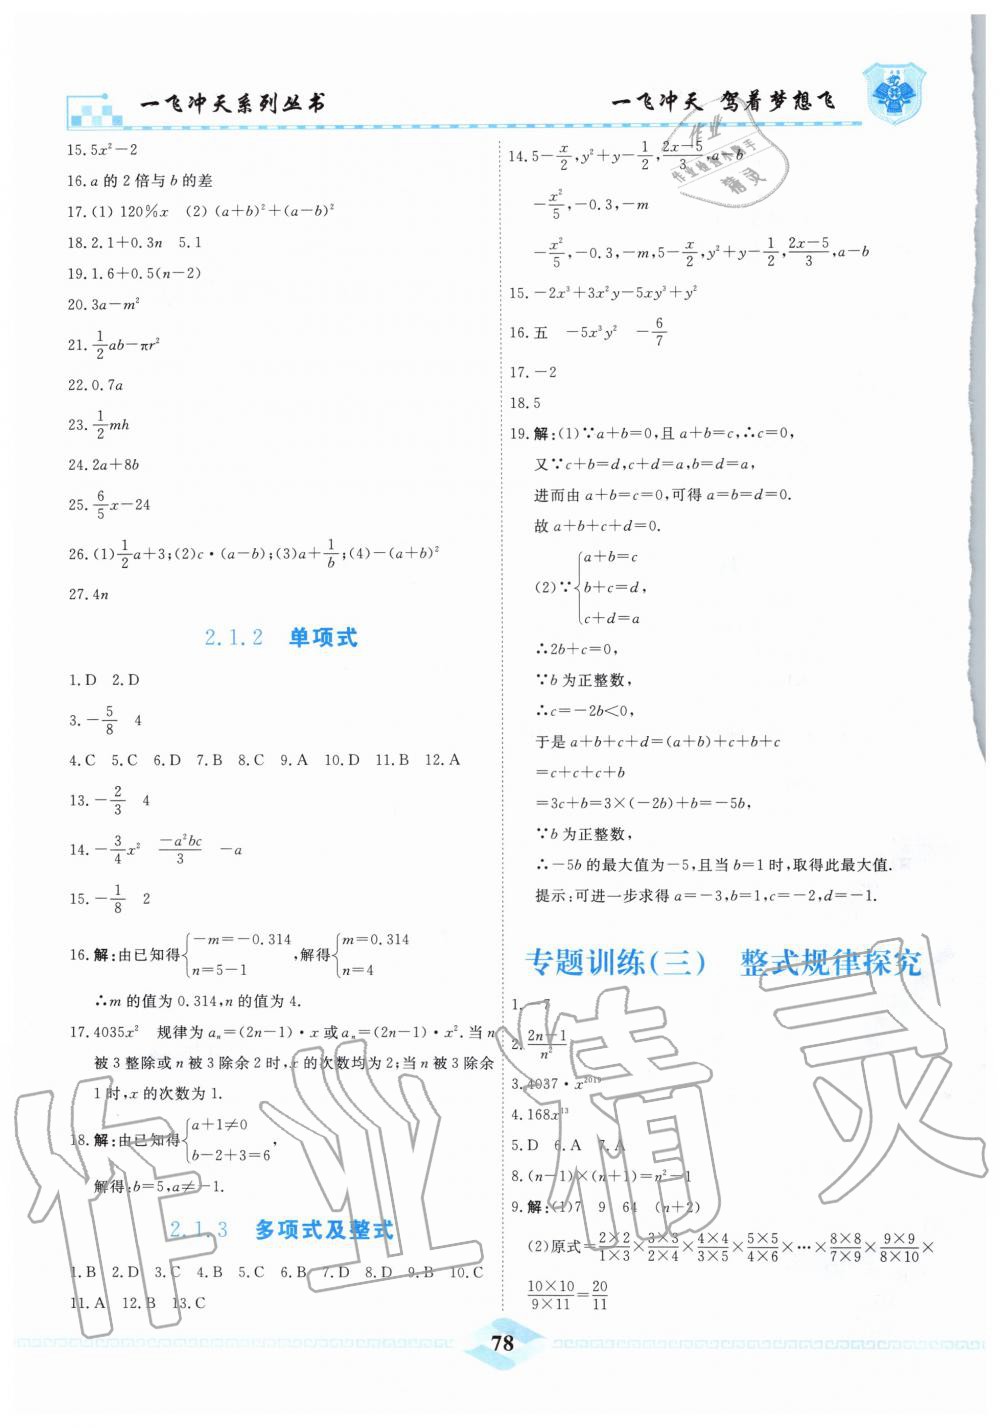 一飞冲天系列丛书
一飞冲天 驾着梦想飞
15.5x²－2
16.a的2倍与b的差
17.(1) 120%x (2) (a＋b)²＋(a－b)²
18.2.1＋0.3n 5.1
19.1.6＋0.5(n－2)
20.3a－m²
21.1/2 ab－πr²
22.0.7a
23.1/2 mh
24.2a＋8b
25.6/5 x－24
26.(1)1/2 a＋3;(2)c·(a－b);(3)a＋1/b;(4)－(a＋b)²
27.4n
2.1.2 单项式
1.D 2.D
3.－5/8 4
4.C 5.C 6.D 7.B 8.C 9.A 10.D 11.B 12.A
13.－2/3 4
14.－3/4 x² －a²bc/3 －a
15.－1/8 2
16.解:由已知得{－m＝－0.314 n＝5－1,解得{m＝0.314 n＝4
∴m的值为0.314,n的值为4.
17.4035x² 规律为aₙ＝(2n－1)·x或aₙ＝(2n－1)·x².当n
被3整除或n被3除余2时,x的次数均为2;当n被3除余
1时,x的次数为1.
18.解:由已知得{a＋1≠0 b－2＋3＝6,
解得:b＝5,a≠－1.
2.1.3 多项式及整式
1.B 2.D 3.C 4.C 5.B 6.D 7.D 8.D 9.B 10.C
11.A 12.B 13.C
14.5－x/2,y²＋y－1/2,2x－5/3,a－b
－x²/5,－0.3,－m
－x²/5,－0.3,－m,5－x/2,y²＋y－1/2,2x－5/3,a－b
15.－2x³＋3x²y－5xy³＋y²
16.五 －5x³y² －6/7
17.－2
18.5
19.解:(1)∵a＋b＝0,且a＋b＝c,∴c＝0,
又∵c＋b＝d,c＋d＝a,b＝d＝a,
进而由a＋b＝c＝0,可得a＝b＝d＝0.
故a＋b＋c＋d＝0.
(2)∵{a＋b＝c b＋c＝d, c＋d＝a
∴2b＋c＝0,
∵b为正整数,
∴c＝－2b＜0,
于是a＋b＋c＋d＝(a＋b)＋c＋b＋c
＝c＋c＋c＋b
＝3c＋b＝3×(－2b)＋b＝－5b,
∵b为正整数,
∴－5b的最大值为－5,且当b＝1时,取得此最大值.
提示:可进一步求得a＝－3,b＝1,c＝－2,d＝－1.
专题训练(三) 整式规律探究
1.－7
2.2n－1/n²
3.4037·x²⁰¹⁹
4.168x¹³
5.D 6.A 7.A
8.(n－1)×(n＋1)＝n²－1
9.解:(1)7 9 64 (n＋2)
(2)原式＝2×2/1×3×3×3/2×4×4×4/3×5×5×5/4×6×…×8×8/7×9×9×9/8×10×
10×10/9×11＝20/11
78
作业精灵
作业
作业检查小帮手
精灵